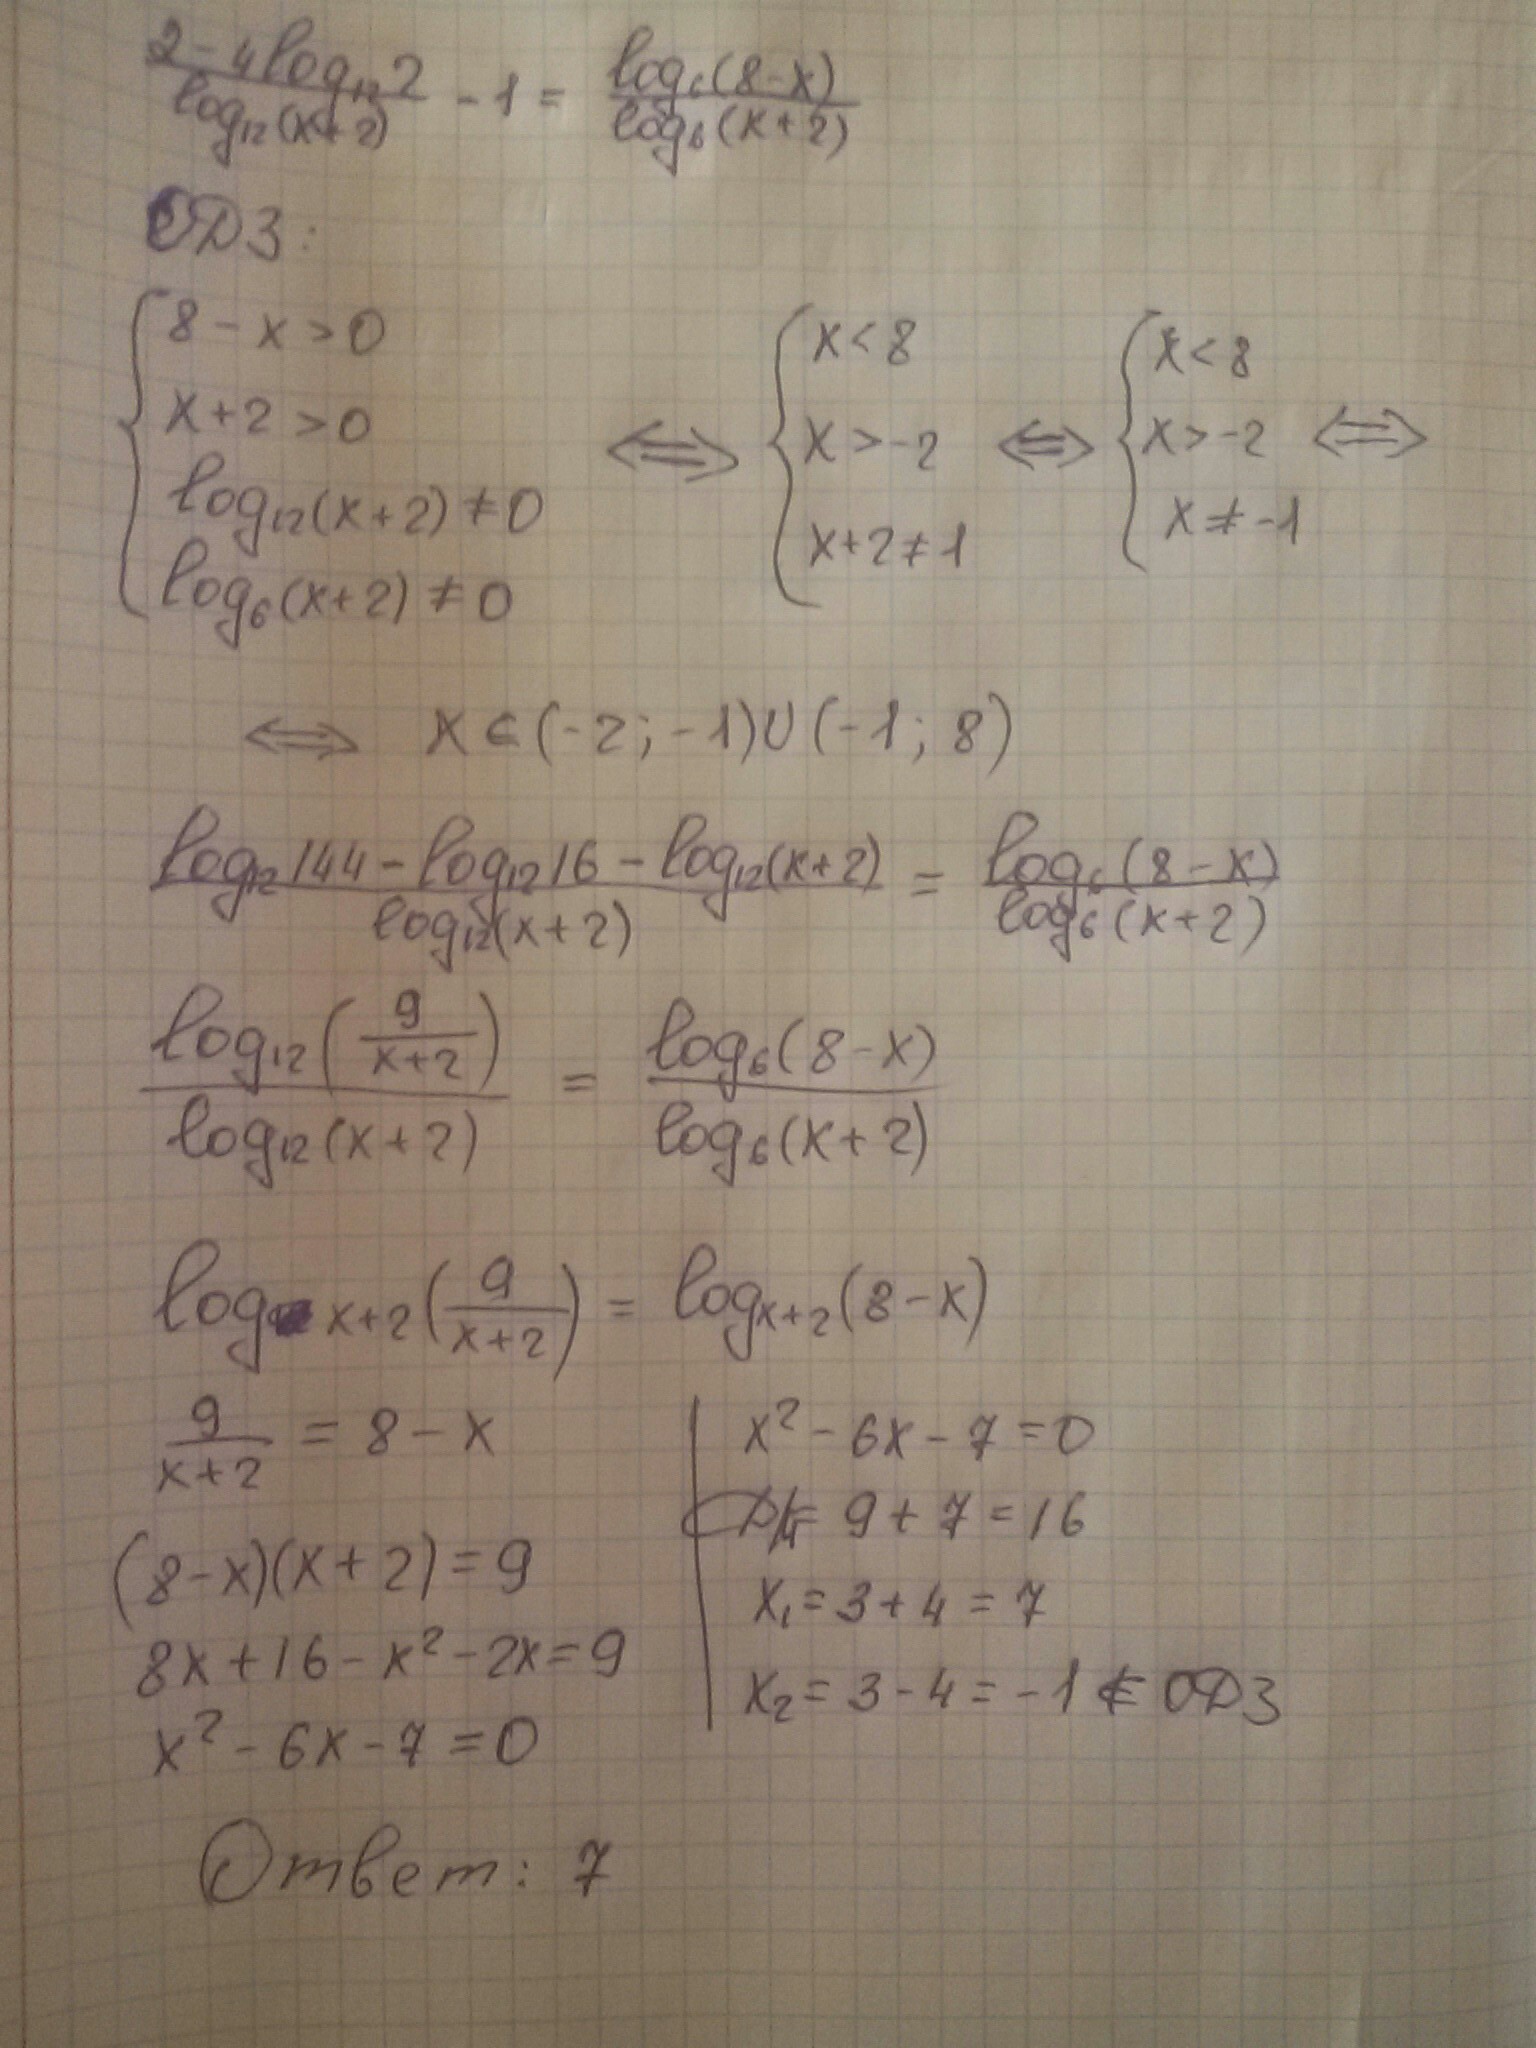 (2-4log₁₂2)/(log₁₂(x+2)) - 1 = (log₆(8-x))/(log₆(x+2))
ОДЗ:
{ 8-x>0
x+2>0
log₁₂(x+2)≠0
log₆(x+2)≠0
⟺ { x<8
x>-2
x+2≠1
⟺ { x<8
x>-2
x≠-1
⟺
⟺ x∈(-2;-1)∪(-1;8)
(log₁₂144-log₁₂16-log₁₂(x+2))/(log₁₂(x+2)) = (log₆(8-x))/(log₆(x+2))
(log₁₂(9/(x+2)))/(log₁₂(x+2)) = (log₆(8-x))/(log₆(x+2))
log x+2 (9/(x+2)) = log x+2 (8-x)
9/(x+2) = 8-x
(8-x)(x+2)=9
8x+16-x²-2x=9
x²-6x-7=0
x²-6x-7=0
D/4= 9+7=16
x₁=3+4=7
x₂=3-4=-1 ∉ ОДЗ
Ответ: 7